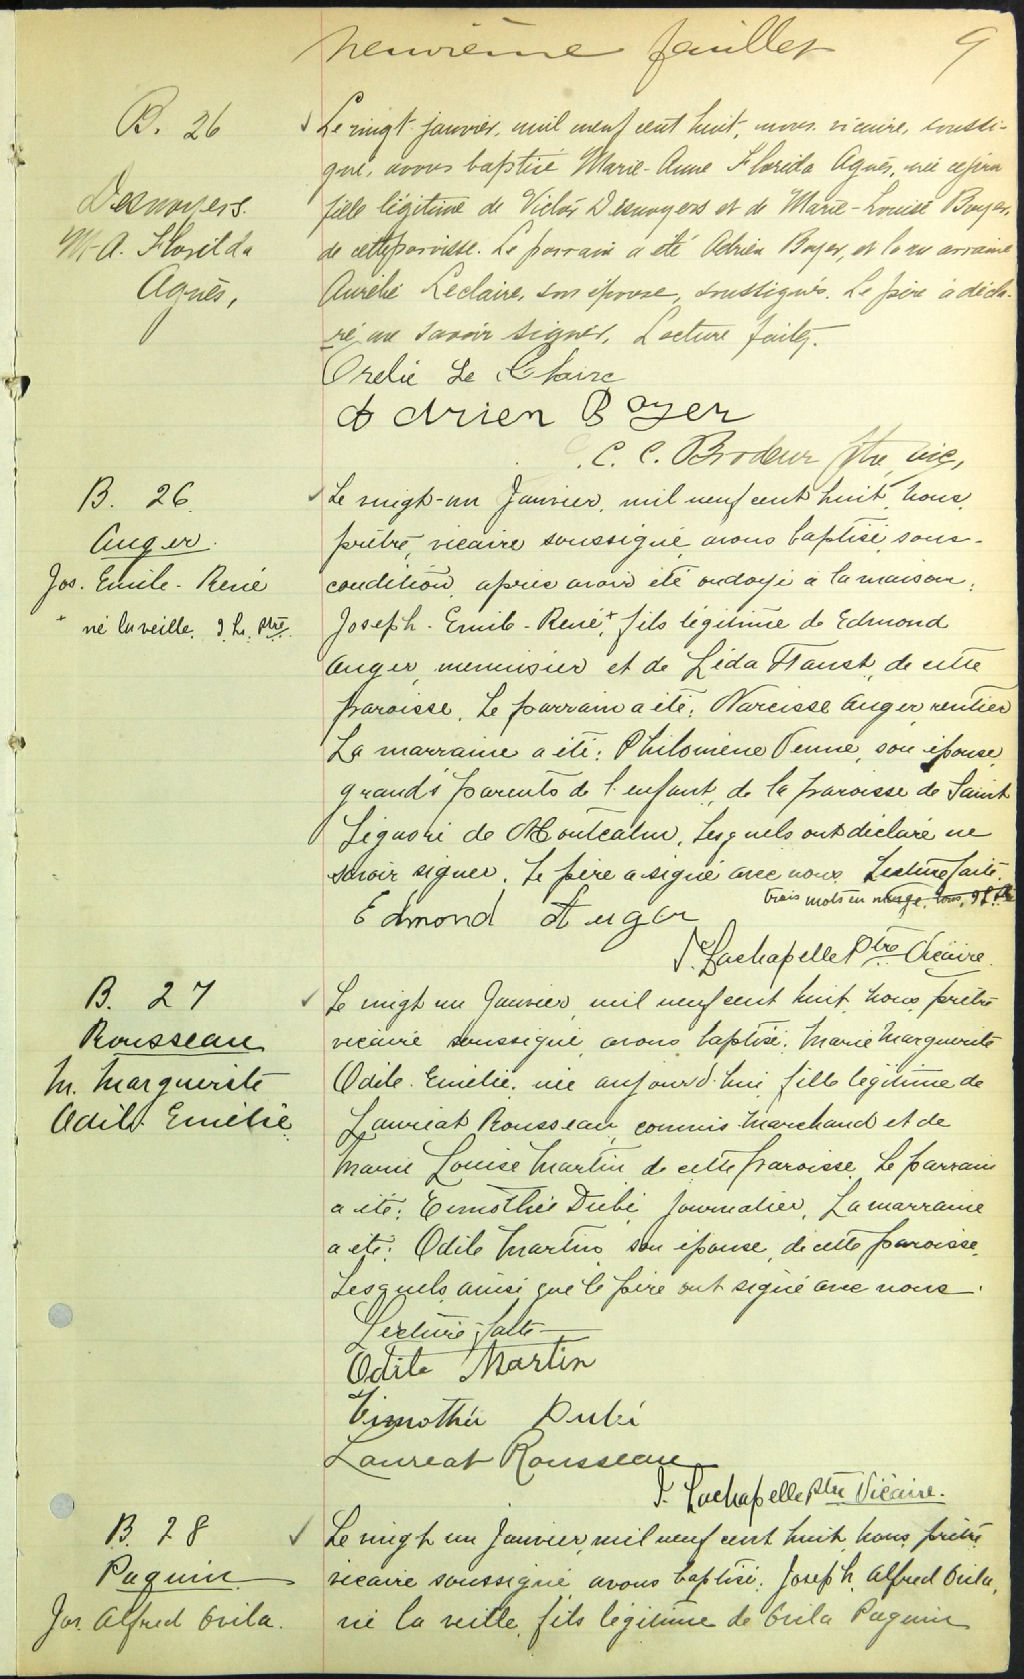 neuvième feuillet 9
B. 26
Desnoyers.
M-A. Florilda
Agnès,
Le vingt janvier, mil neuf cent huit, nous vicaire, soussi-
gné, avons baptisé Marie-Anne Florida Agnès, née ce jour
fille légitime de Victor Desnoyers et de Marie-Louise Boyer,
de cette paroisse. Le parrain a été Adrien Boyer, et la marraine
Aurélie Leclaire, son épouse, soussignés. Le père a décla-
ré ne savoir signer. Lecture faite.
Orelie Le Claire
Adrien Boyer
C. C. Brodeur Ptre, vic,
B. 26
Auger.
Jos. Emile-René
+ né la veille. J. L. Ptre
Le vingt-un Janvier, mil neuf cent huit, nous,
prêtre, vicaire soussigné, avons baptisé, sous-
condition, après avoir été ondoyé à la maison,
Joseph-Emile-René+, fils légitime de Edmond
Auger, menuisier et de Léda Faust, de cette
paroisse. Le parrain a été: Narcisse Auger rentier
La marraine a été: Philomène Venne, son épouse,
grands parents de l'enfant, de la paroisse de Saint
Liguori de Montcalm. Lesquels ont déclaré ne
savoir signer. Le père a signé avec nous. Lecture faite.
trois mots en marge, bons, J. L. Ptre
Edmond Auger
J. Lachapelle Ptre Vicaire.
B. 27
Rousseau
M. Marguerite
Odile Emélie
Le vingt un Janvier, mil neuf cent huit, nous, prêtre
vicaire soussigné, avons baptisé, Marie Marguerite
Odile-Emélie, née aujourd'hui, fille légitime de
Lauréat Rousseau, commis-marchand et de
Marie Louise Martin de cette paroisse. Le parrain
a été: Timothée Dubé, journalier, La marraine
a été: Odile Martin, son épouse, de cette paroisse,
Lesquels ainsi que le père ont signé avec nous.
Lecture faite
Odile Martin
Timothée Dubé
Laureat Rousseau
J. Lachapelle Ptre Vicaire.
B. 28
Paquin
Jos. Alfred Ovila.
Le vingt un Janvier, mil neuf cent huit, nous, prêtre,
vicaire soussigné, avons baptisé, Joseph Alfred Ovila,
né la veille, fils légitime de Ovila Paquin